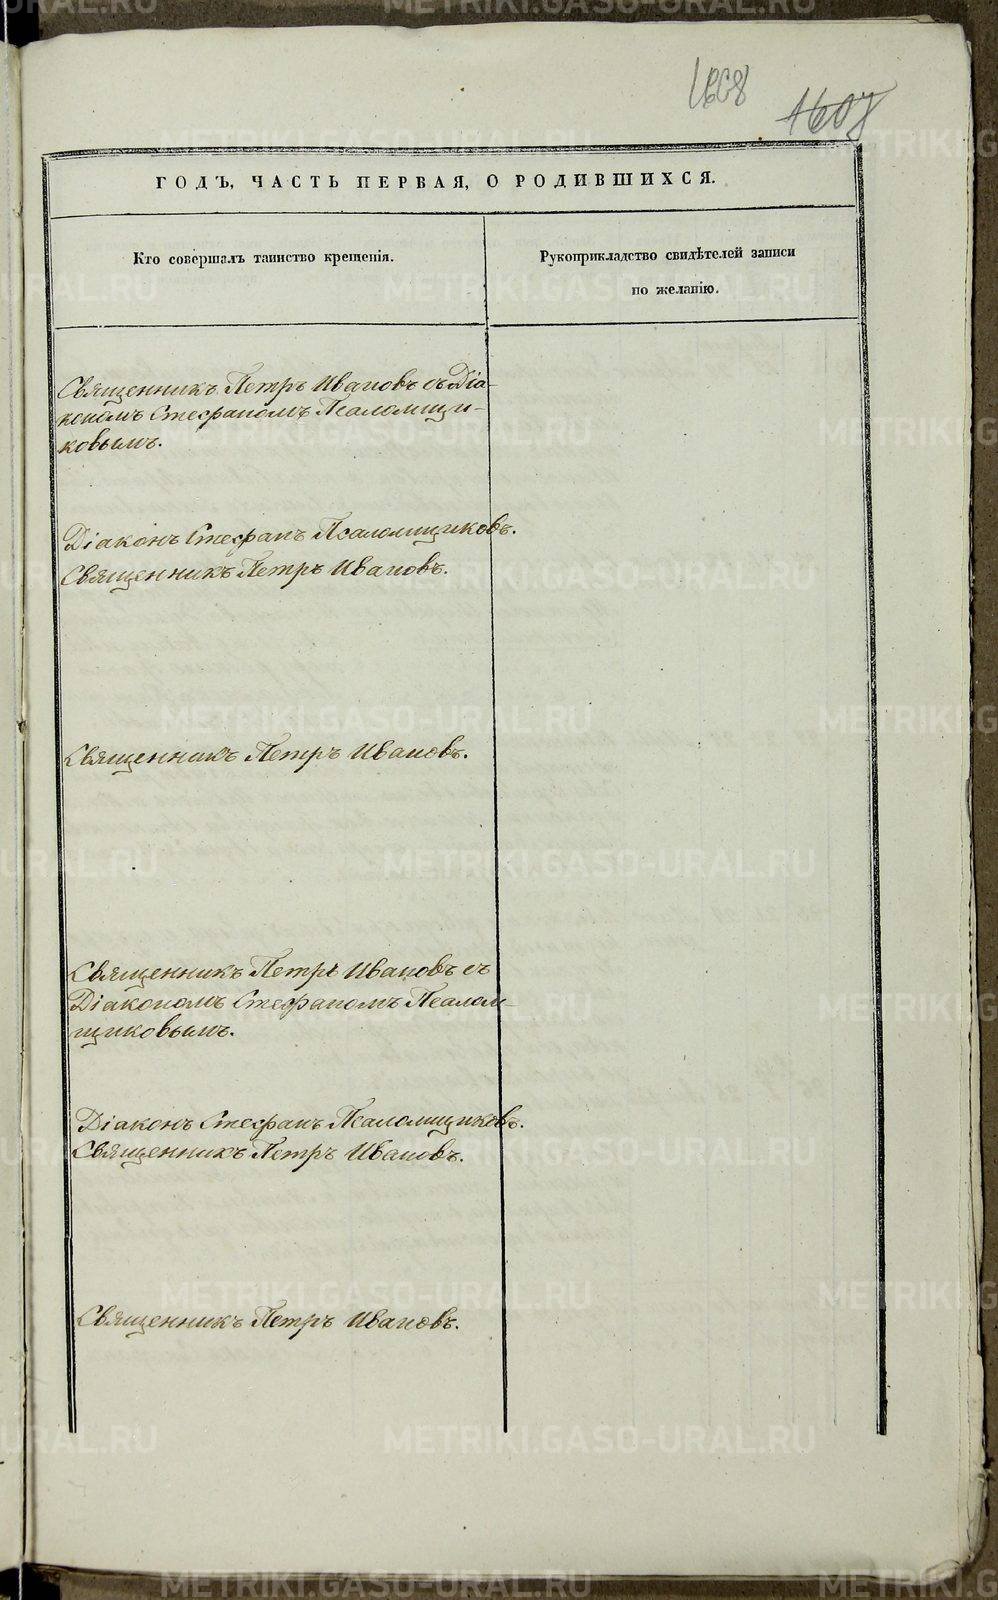 1608
1607
ГОДЪ, ЧАСТЬ ПЕРВАЯ, О РОДИВШИХСЯ.
Кто совершалъ таинство крещенія.
Рукоприкладство свидѣтелей записи
по желанію.
Священникъ Петръ Ивановъ съ Діа-
кономъ Стефаномъ Псаломщи-
ковымъ.
Діаконъ Стефанъ Псаломщиковъ.
Священникъ Петръ Ивановъ.
Священникъ Петръ Ивановъ.
Священникъ Петръ Ивановъ съ
Діакономъ Стефаномъ Псалом-
щиковымъ.
Діаконъ Стефанъ Псаломщиковъ.
Священникъ Петръ Ивановъ.
Священникъ Петръ Ивановъ.
METRIKI.GASO-URAL.RU